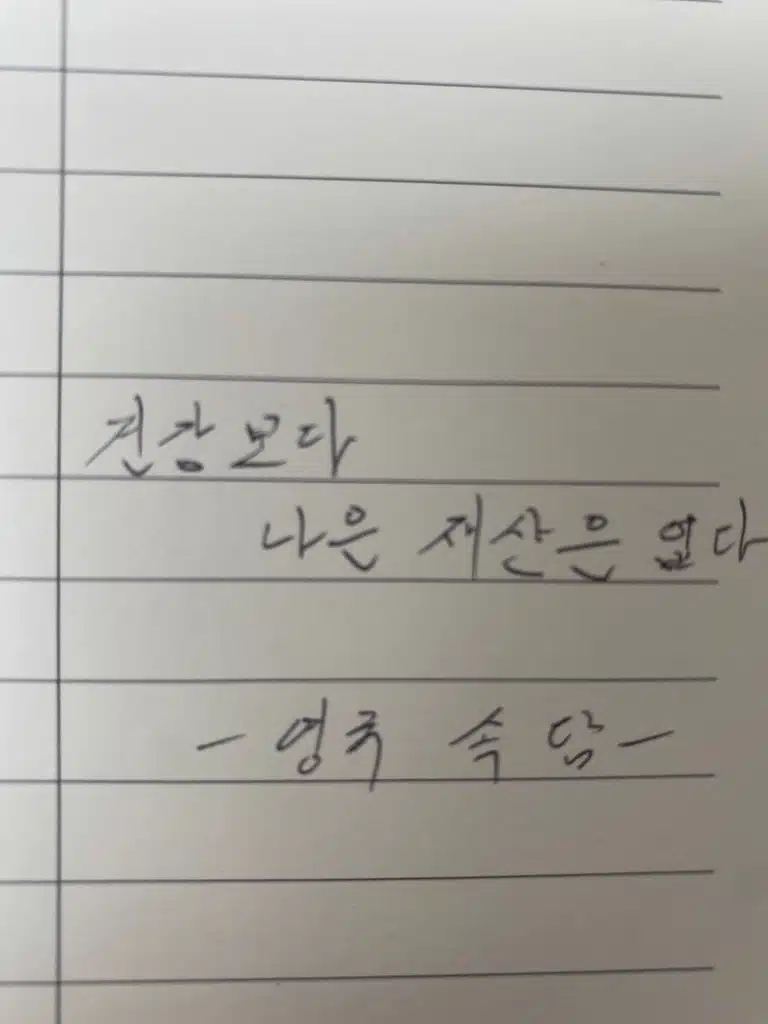 건강보다
나은 재산은 없다
- 영국 속담 -